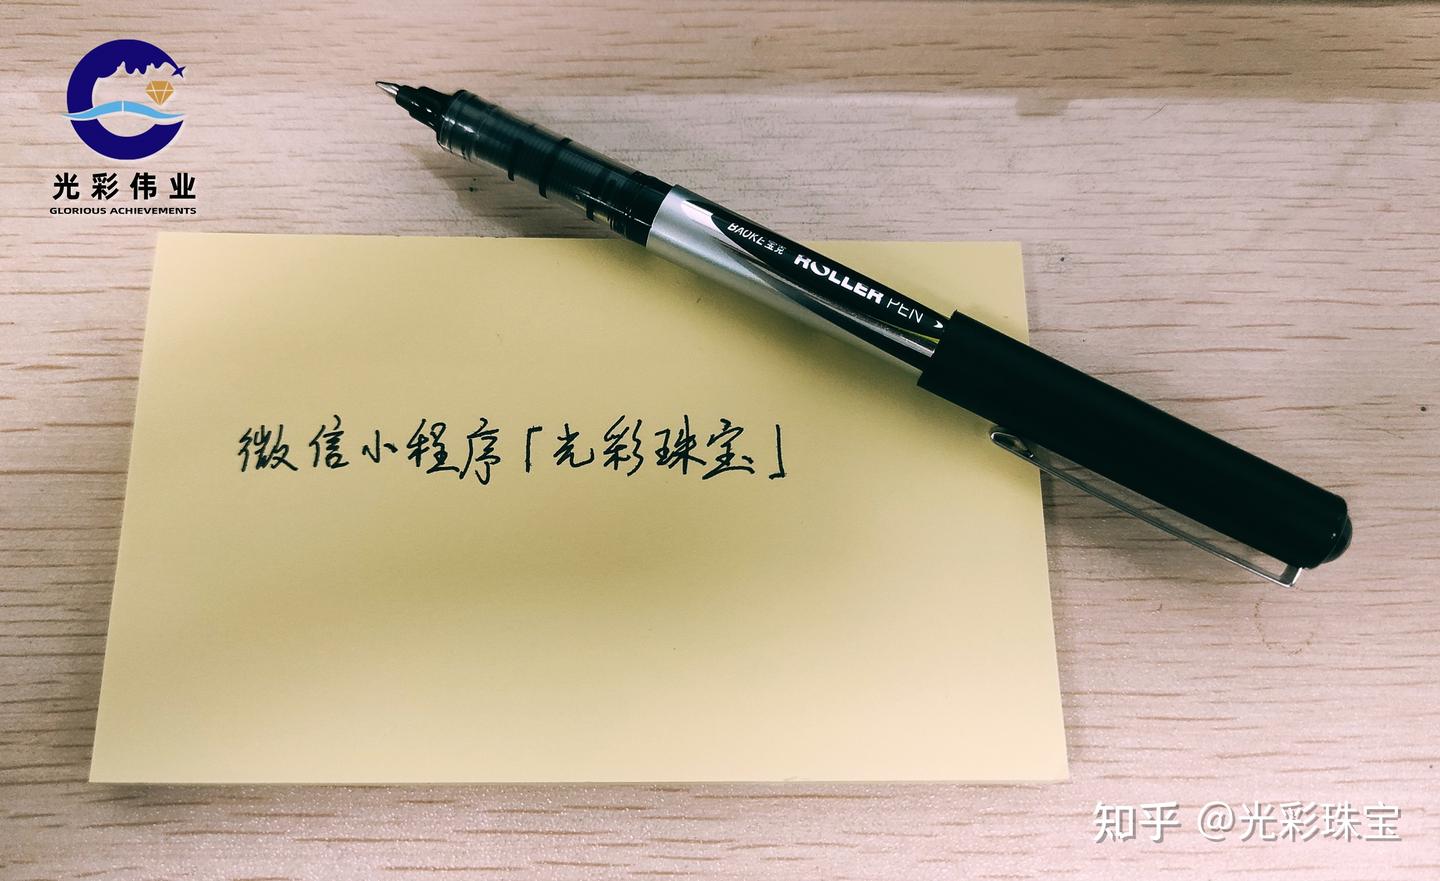 光彩伟业
GLORIOUS ACHIEVEMENTS
BAOKE 宝克 ROLLER PEN
微信小程序「光彩珠宝」
知乎 @光彩珠宝